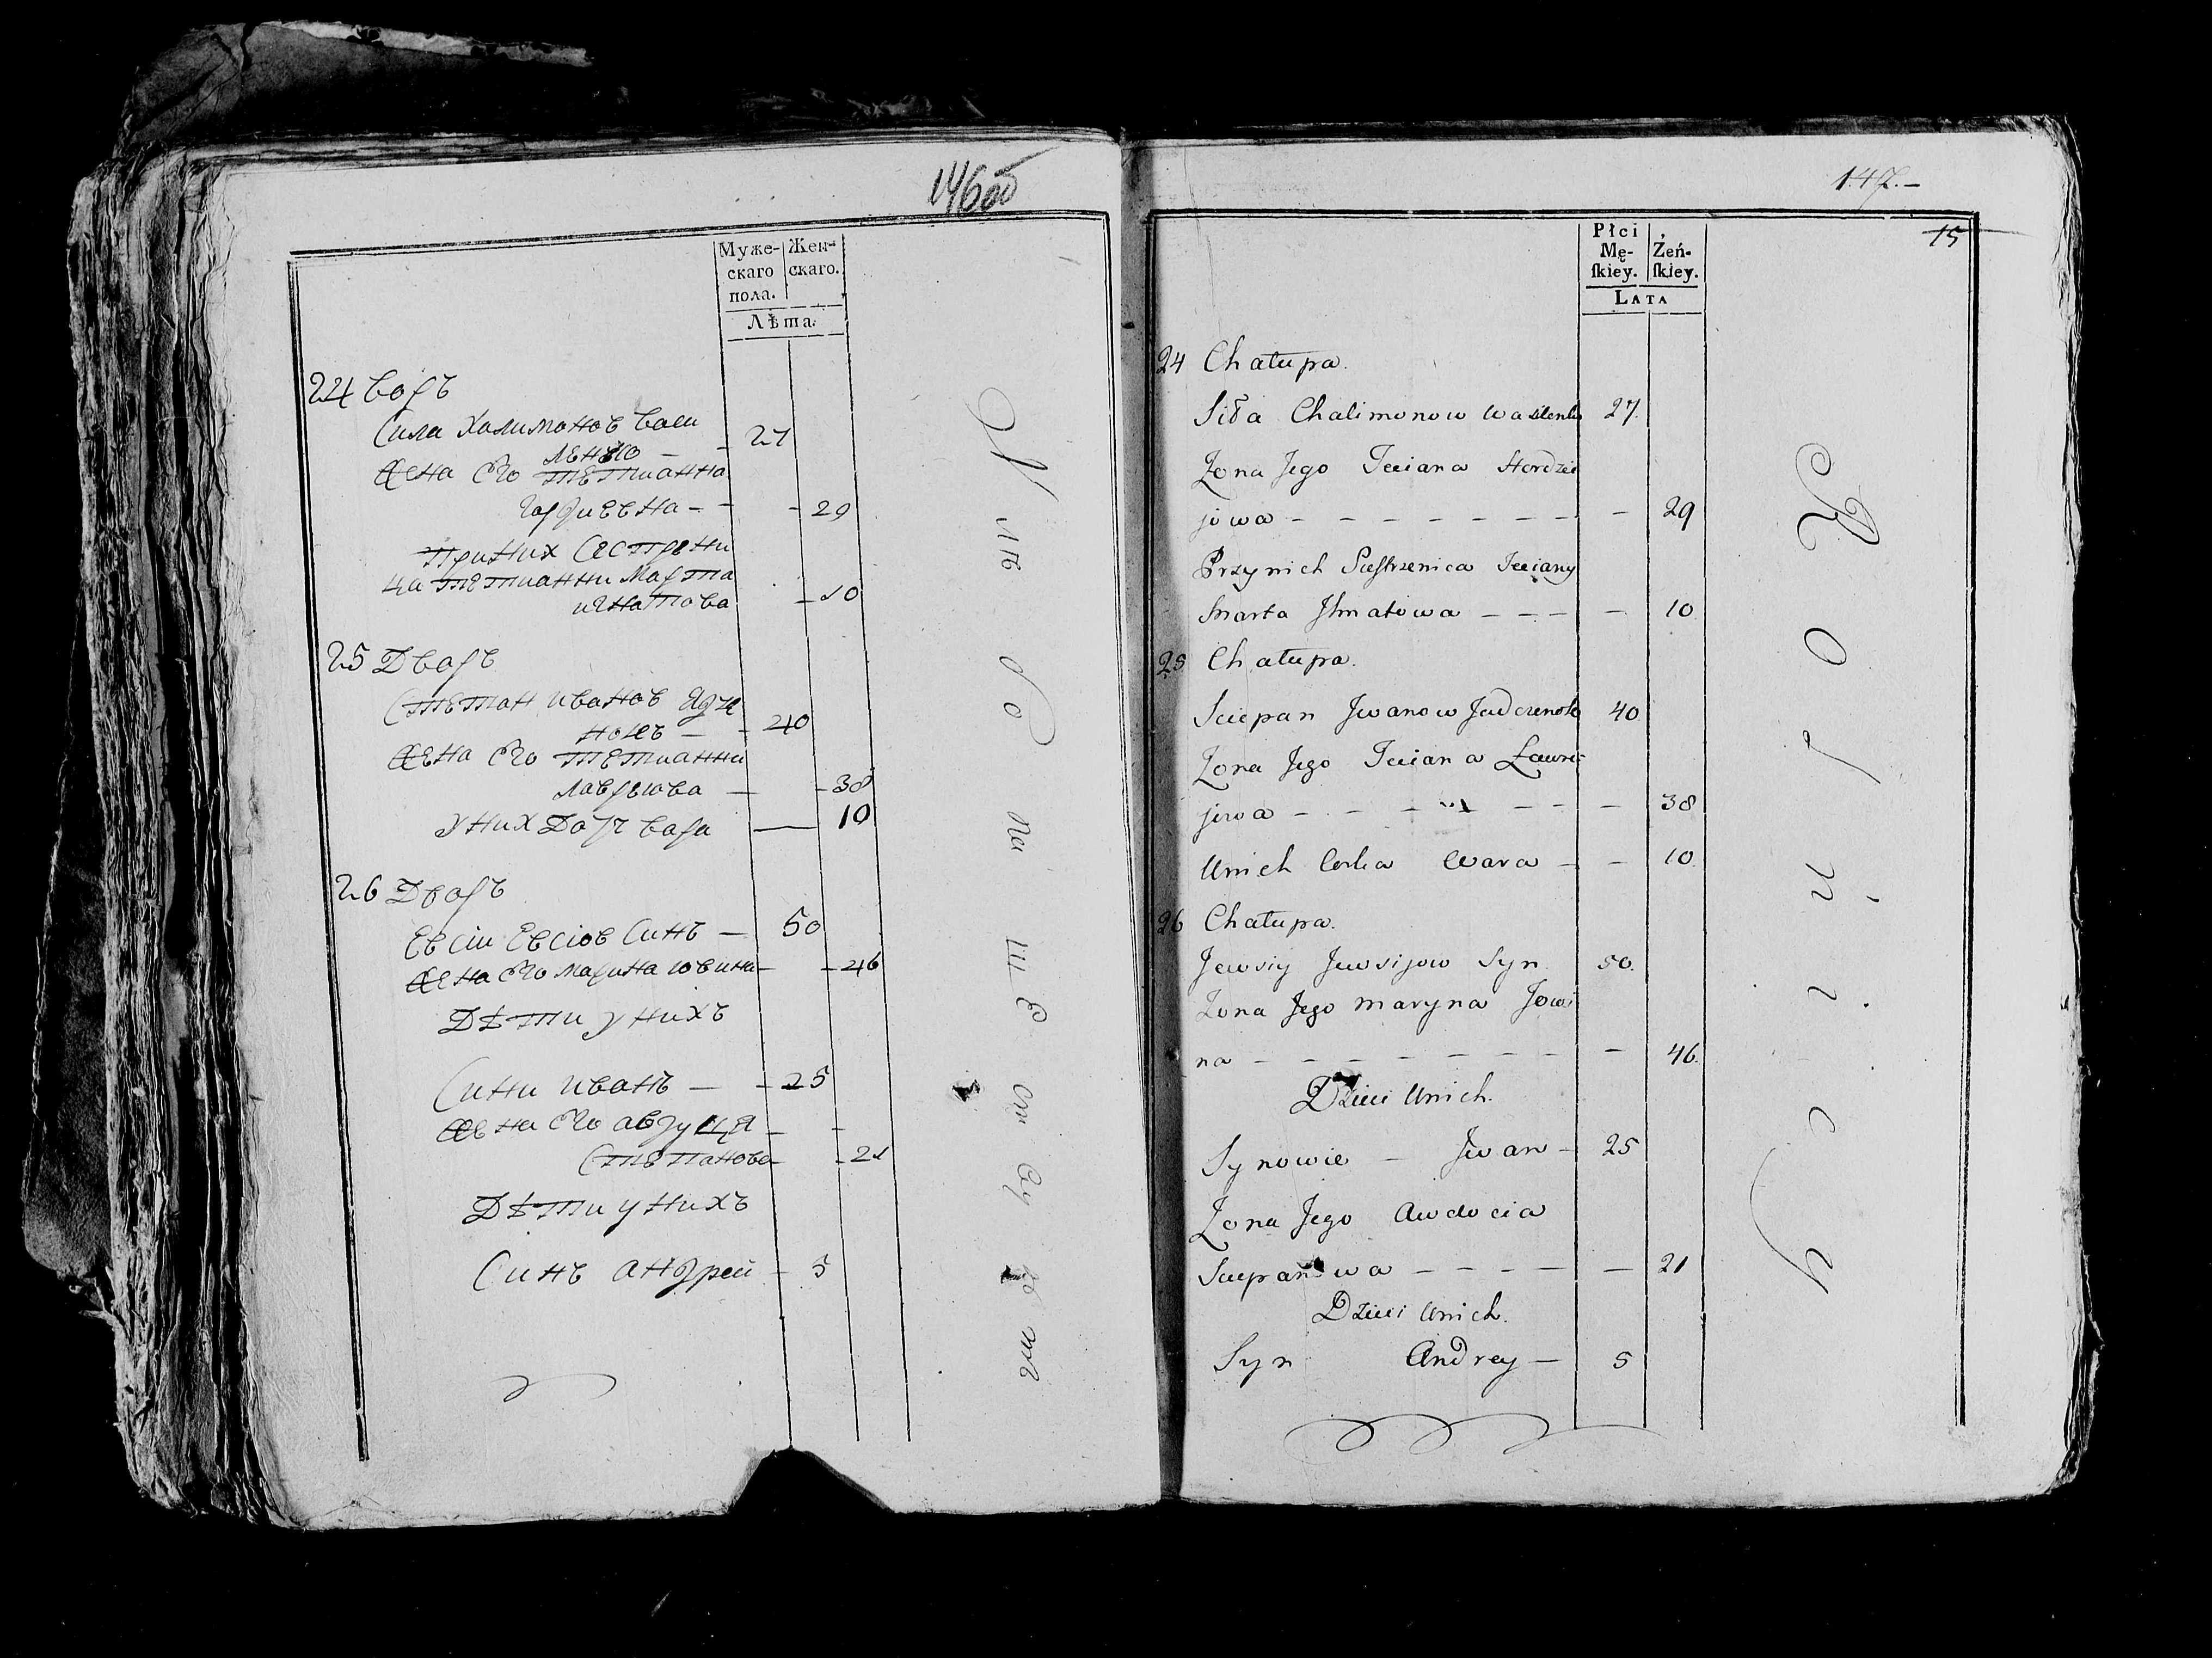 146об
Муже-
скаго
пола.
Жен-
скаго.
Лѣта.
24 Воръ
Сила Халимоновъ Васи
ленко — 27
Жена его Тетианна
Гордиевна - - - 29
При них Сестрени
ца Тетианни Марта
игнатова - 10
25 Дворъ
Степан Ивановъ Ядче
нокъ — 40
Жена его Тетианна
Лаврыова — - 38
у них Дочь Вара — 10
26 Дворъ
Евсии Евсіов Синъ — 50
Жена его Марина Ювина - - 46
Дѣти у нихъ
Сини Иванъ — - 25
Жена его авдуця - -
Степанова - - 21
Дѣти у нихъ
Синъ андрей - 5
147.-
15
Płci
Mę-
ſkiey.
Żeń-
ſkiey.
LATA
24 Chałupa.
Siła Chalimonow Wasilenko 27.
Żona Jego Teciana Hordzie
jowa - - - - - - - - 29
Przynich Siestrzenica Teciany
Marta Jhnatowa - - - - 10
25 Chałupa.
Sciepan Jwanow Jadczenok 40
Żona Jego Teciana Ławre
jewa - - - - - - - - 38
Unich Corka Wara - - 10
26 Chałupa.
Jewsiy Jewsijow Syn 50.
Żona Jego Maryna Jowi
na - - - - - - - - 46.
Dzieci Unich.
Synowie - Jwan - 25
Żona Jego Awdocia
Sciepanowa - - - - - 21
Dzieci Unich.
Syn Andrey - 5
K o ſ n i c y